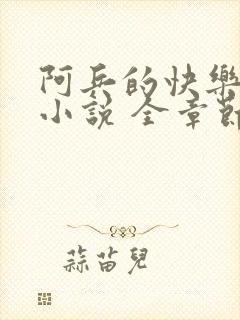 阿兵的快樂
小說 全章節
蒜苗兒